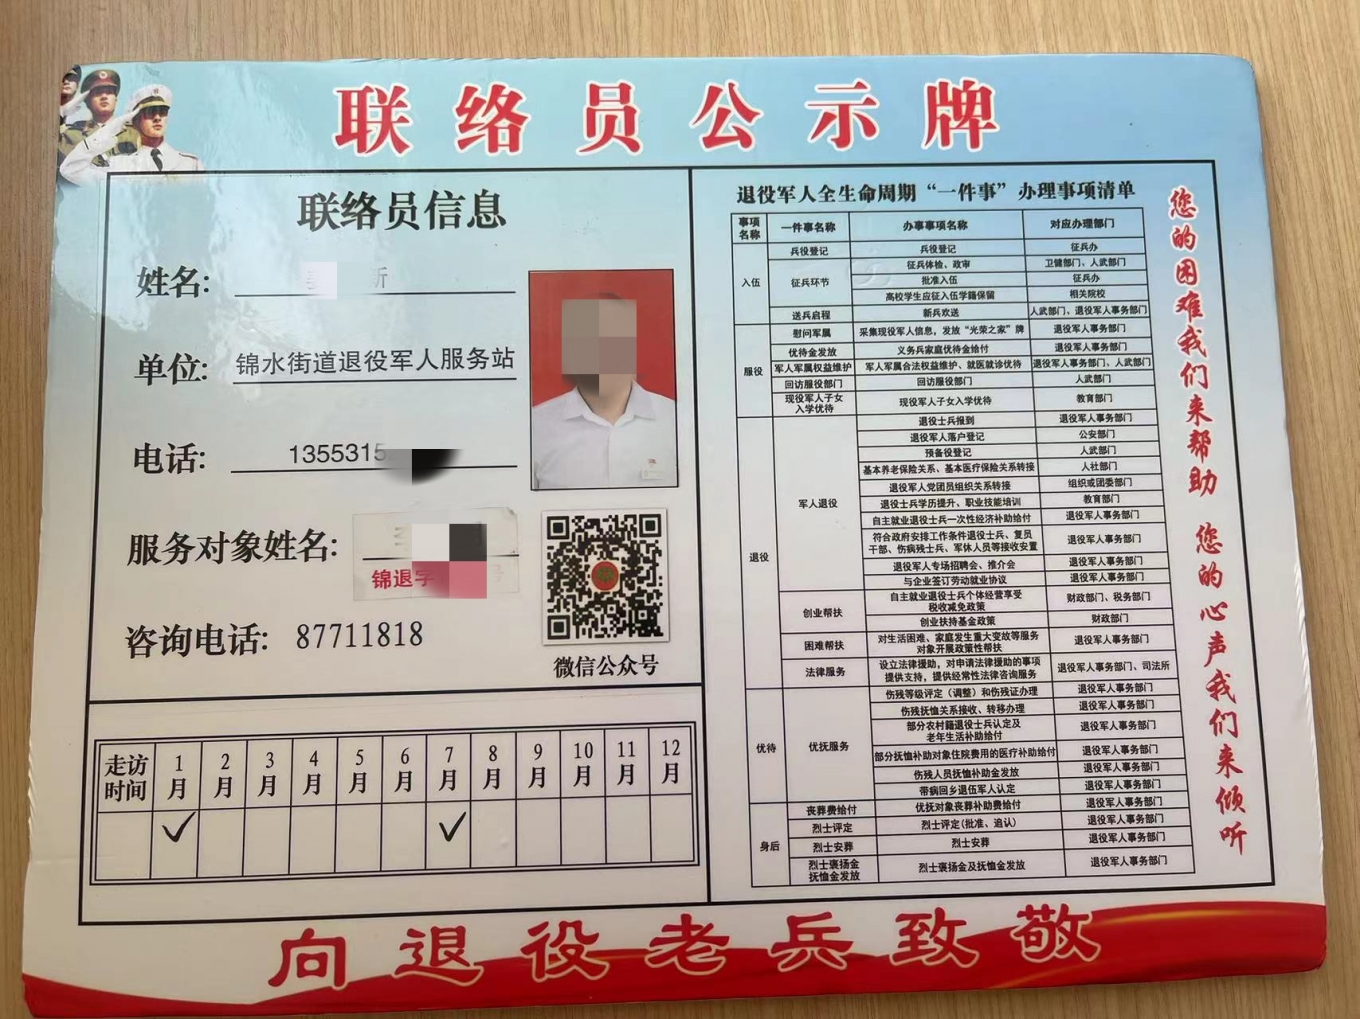 联络员公示牌
联络员信息
姓名:
单位: 锦水街道退役军人服务站
电话: 1355315
服务对象姓名:
锦退字
咨询电话: 87711818
微信公众号
走访时间 1月 2月 3月 4月 5月 6月 7月 8月 9月 10月 11月 12月
✓ ✓
退役军人全生命周期“一件事”办理事项清单
事项名称 一件事名称 办事事项名称 对应办理部门
入伍 兵役登记 兵役登记 征兵办
征兵环节 征兵体检、政审 卫健部门、人武部门
批准入伍 征兵办
高校学生应征入伍学籍保留 相关院校
送兵启程 新兵欢送 人武部门、退役军人事务部门
服役 慰问军属 采集现役军人信息，发放“光荣之家”牌 退役军人事务部门
优待金发放 义务兵家庭优待金给付 退役军人事务部门
军人军属权益维护 军人军属合法权益维护、就医就诊优待 退役军人事务部门、人武部门
回访服役部门 回访服役部门 人武部门
现役军人子女入学优待 现役军人子女入学优待 教育部门
退役 军人退役 退役士兵报到 退役军人事务部门
退役军人落户登记 公安部门
预备役登记 人武部门
基本养老保险关系、基本医疗保险关系转接 人社部门
退役军人党团员组织关系转接 组织或团委部门
退役士兵学历提升、职业技能培训 教育部门
自主就业退役士兵一次性经济补助给付 退役军人事务部门
符合政府安排工作条件退役士兵、复员
干部、伤病残士兵、军休人员等接收安置 退役军人事务部门
退役军人专场招聘会、推介会 退役军人事务部门
与企业签订劳动就业协议 退役军人事务部门
创业帮扶 自主就业退役士兵个体经营享受
税收减免政策 财政部门、税务部门
创业扶持基金政策 财政部门
困难帮扶 对生活困难、家庭发生重大变故等服务
对象开展政策性帮扶 退役军人事务部门
法律服务 设立法律援助，对申请法律援助的事项
提供支持，提供经常性法律咨询服务 退役军人事务部门、司法所
优待 优抚服务 伤残等级评定（调整）和伤残证办理 退役军人事务部门
伤残抚恤关系接收、转移办理 退役军人事务部门
部分农村籍退役士兵认定及
老年生活补助给付 退役军人事务部门
部分抚恤补助对象住院费用的医疗补助给付 退役军人事务部门
伤残人员抚恤补助金发放 退役军人事务部门
带病回乡退伍军人认定 退役军人事务部门
身后 丧葬费给付 优抚对象丧葬补助费给付 退役军人事务部门
烈士评定 烈士评定(批准、追认) 退役军人事务部门
烈士安葬 烈士安葬 退役军人事务部门
烈士褒扬金
抚恤金发放 烈士褒扬金及抚恤金发放 退役军人事务部门
您的困难我们来帮助 您的心声我们来倾听
向退役老兵致敬